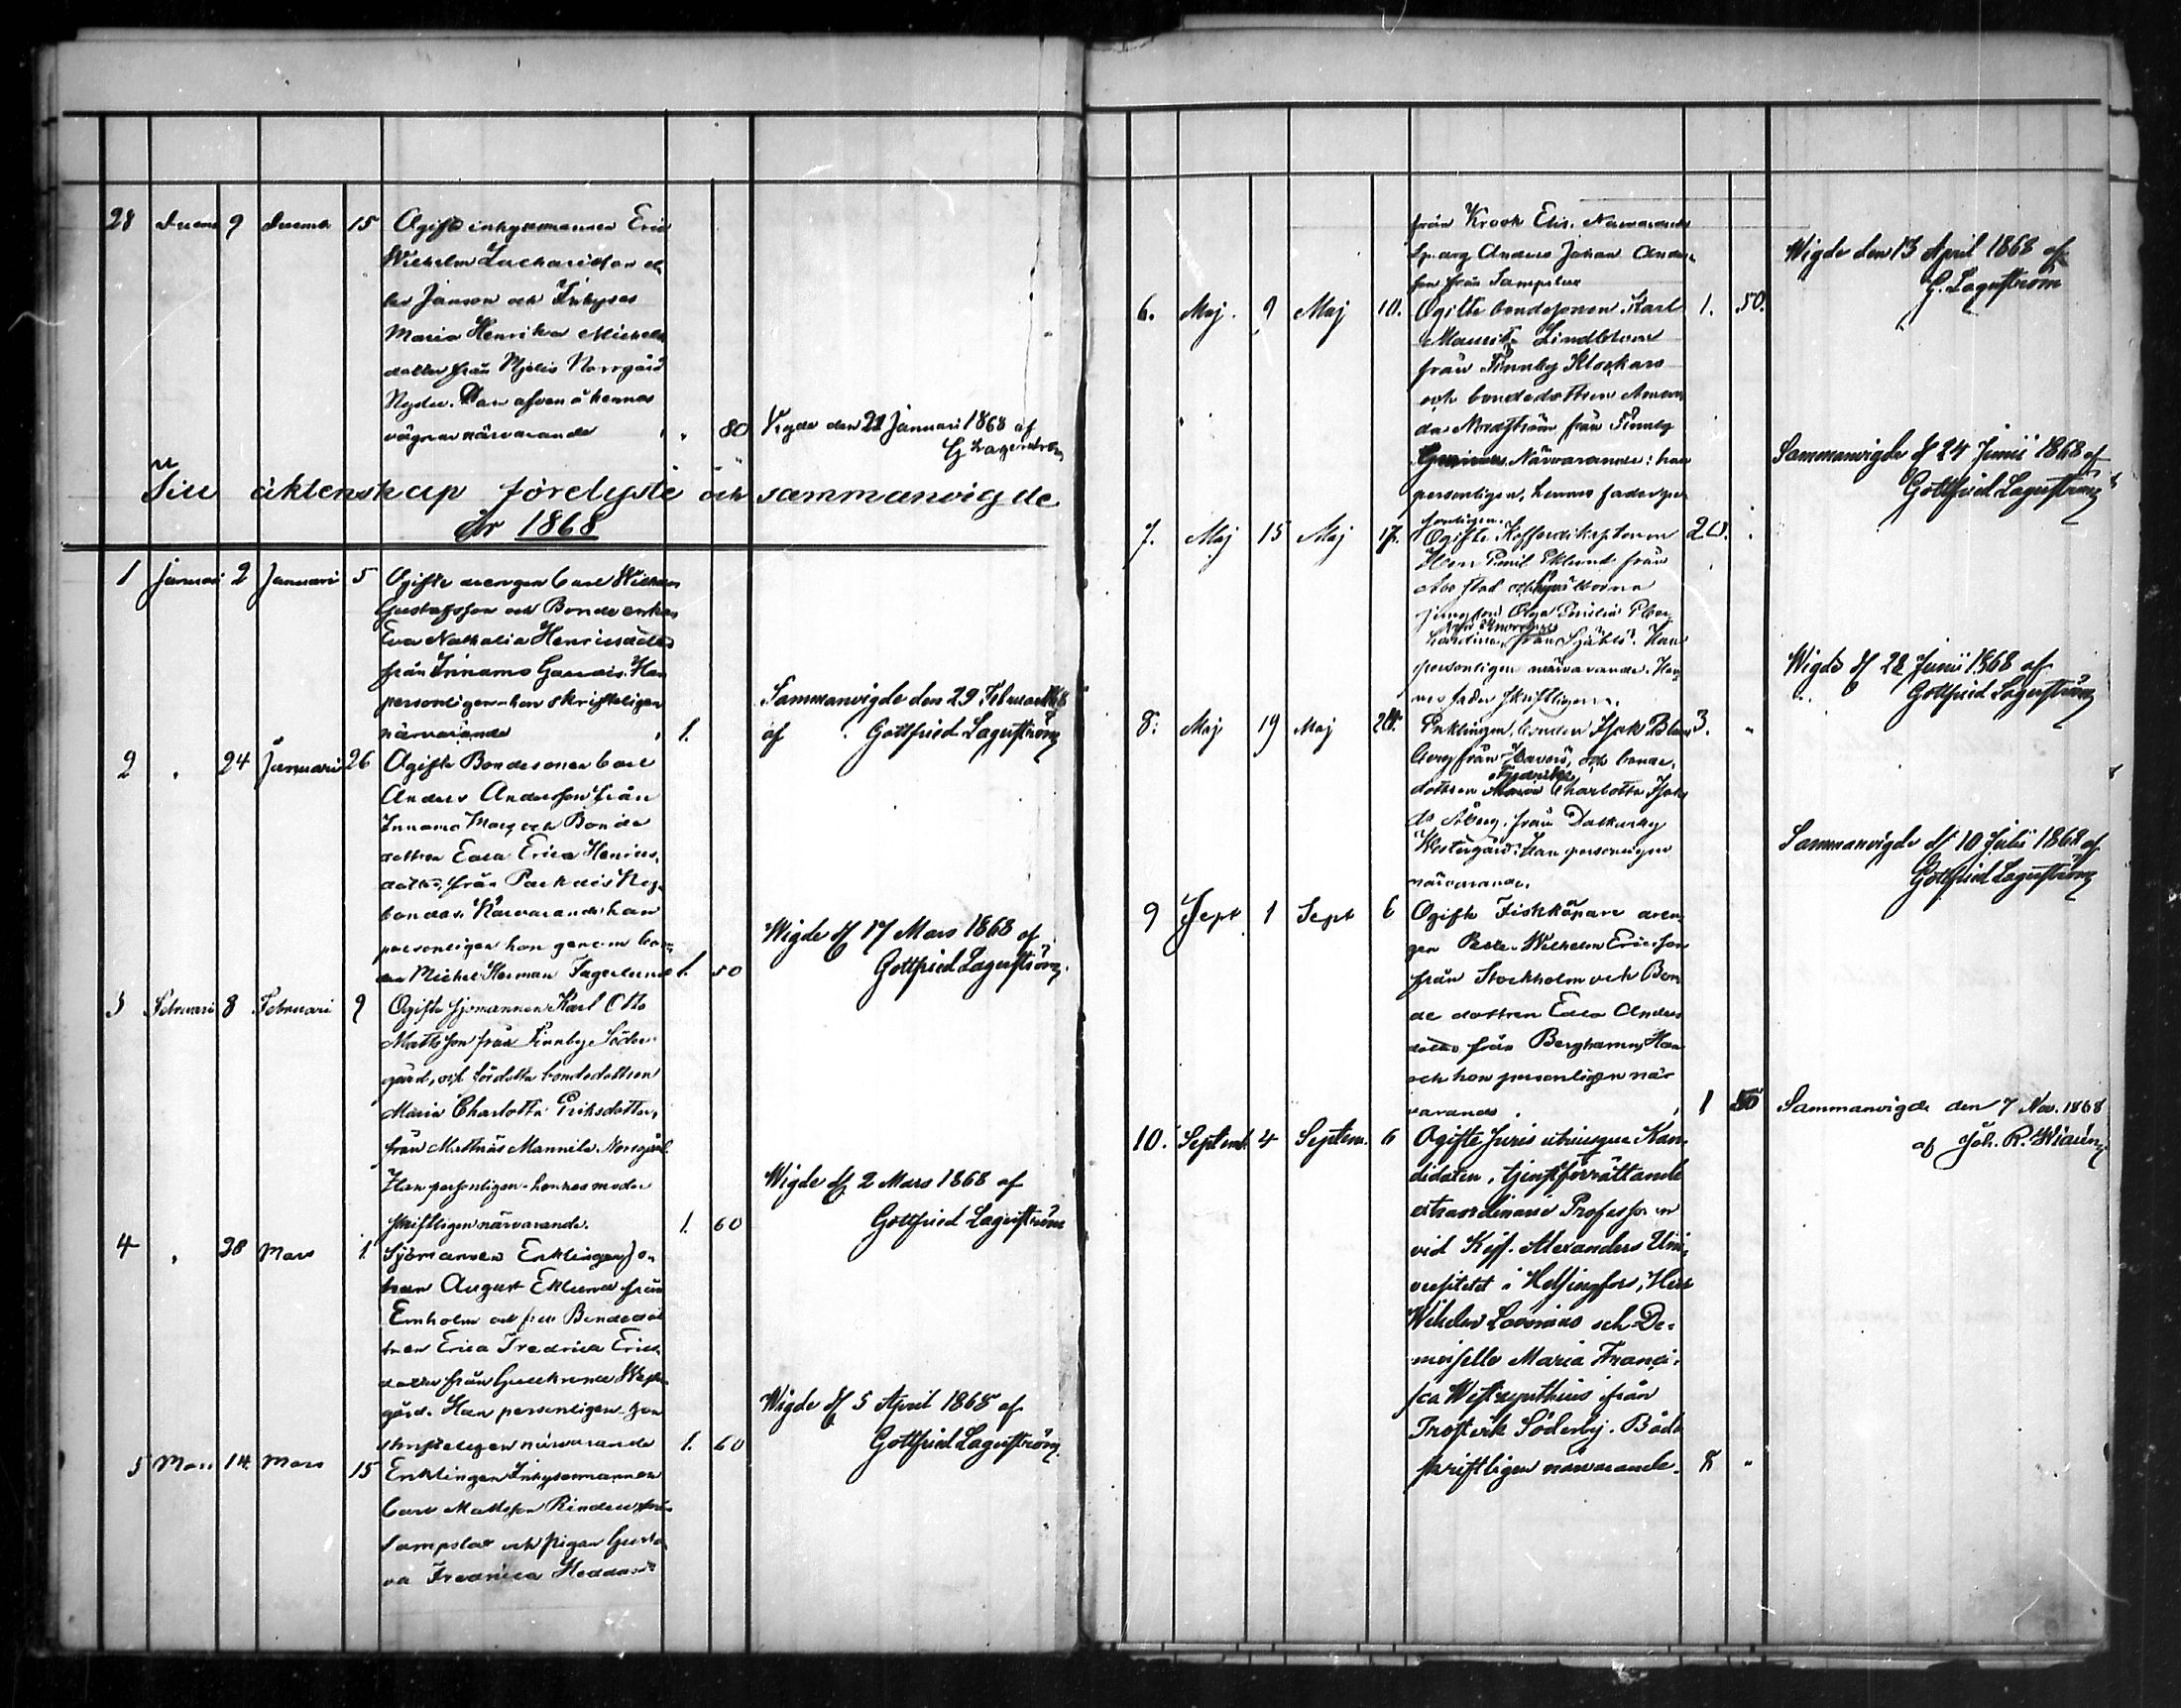 28 Decem 9 Decemb 15 Ogifte inhysesmannen Eric
Wilhelm Zachariesson el
ler Janson och Inhyses
Maria Henrika Michels
dotter från Mjelis Norrgård
Nyder. Han äfven å hennes
vägnar närvarande " 80 Vigde den 22 Januari 1868 af
G Lagerström
Till äktenskap förelyste och sammanvigde
år 1868
1 Januari 2 Januari 5 Ogifte drengen Carl Wilhelm
Gustafsson och Bondeenkan
Eva Nathalia Henricsdotter
från Innamo Han
personligen hon skrifteligen
närvarande 1. Sammanvigde den 29 Februari 1868
af Gottfried Lagerström
2 " 24 Januari 26 Ogifte Bondesonen Carl
Anders Andersson från
Innamo och Bonde
dottren Eva Erica Henrics
dotter från Parkais Ny
bondas. Närvarande han
personligen hon genom bon
den Michel Herman Fagerlund 1. 50 Wigde d 17 Mars 1868 af
Gottfried Lagerström.
3 Februari 8 Februari 9 Ogifte sjömannen Karl Otto
Mattsson från Finnby Söder
gård, och bondedottren
Maria Charlotta Eriksdotter,
från Mattnäs Mannila Norrgård.
Han personligen hennes moder
skriftligen närvarande. 1. 60 Wigde d 2 Mars 1868 af
Gottfried Lagerström
4 " 28 Mars 1 Sjömannen Enklingen Jo
han August Eklund från
Ernholm och Bondedot
tren Erica Fredrica Erics
dotter från West
gård. Han personligen hon
skrifteligen närvarande 1. 60 Wigde d 5 April 1868 af
Gottfried Lagerström.
5 Mars 14 Mars 15 Enklingen Inhysesmannen
Carl Mattsson Rindell från
Sampslax och pigan Gusta
va Fredrica
från Krook Elis. Närvarande
Anders Johan Anders
son från Sampslax Wigde den 13 April 1868 af
G. Lagerström
6. Maj 9 Maj 10. Ogifte bondesonen Karl 1. 50.
Maurits Lindblom
från Finnby Klockars
och bondedottren Aman
da Nordström från Finnby
Närvarande: han
personligen, hennes fader per
sonligen. Sammanvigde d 24 Junii 1868 af
Gottfried Lagerström
7. Maj 15 Maj 17. Ogifte Kofferdikaptenen 20. "
Herr Emil Eklund från
Åbo stad och välborna
jungfrun Olga Emilia
från Själö. Han
personligen närvarande. Hen
nes fader skriftligen. Wigde d 28 Junii 1868 af
Gottfried Lagerström
8. Maj 19 Maj 24. Enklingen, bonden Isak Blom 3. "
berg från Haverö, och bonde
Fredrika
dottren Maria Charlotta Isaks
dr Åberg från Dalkarby
Westergård. Han personligen
närvarande. Sammanvigde d 10 Julii 1868 af
Gottfried Lagerström
9 Sept 1 Sept 6 Ogifte Fiskköpare dren
gen Wilhelm Ericsson
från Stockholm och Bon
de dottren Eva Anders
dotter från Berghamn, Han
och hon personligen när
varande. 1 50 Sammanvigde den 7 Nov. 1868
af Joh. R.
10. Septemb. 4 Septem. 6 Ogifte Juris utriusque Kan
didaten, tjenstförrättande
extraordinarie Professorn
vid Kejs. Alexanders Uni
versitetet i Helsingfors, Herr
Wilhelm Lavonius och De
moiselle Maria Franci
sca Westzynthius från
Trostvik Söderby. Båda
skriftligen närvarande. 8 "